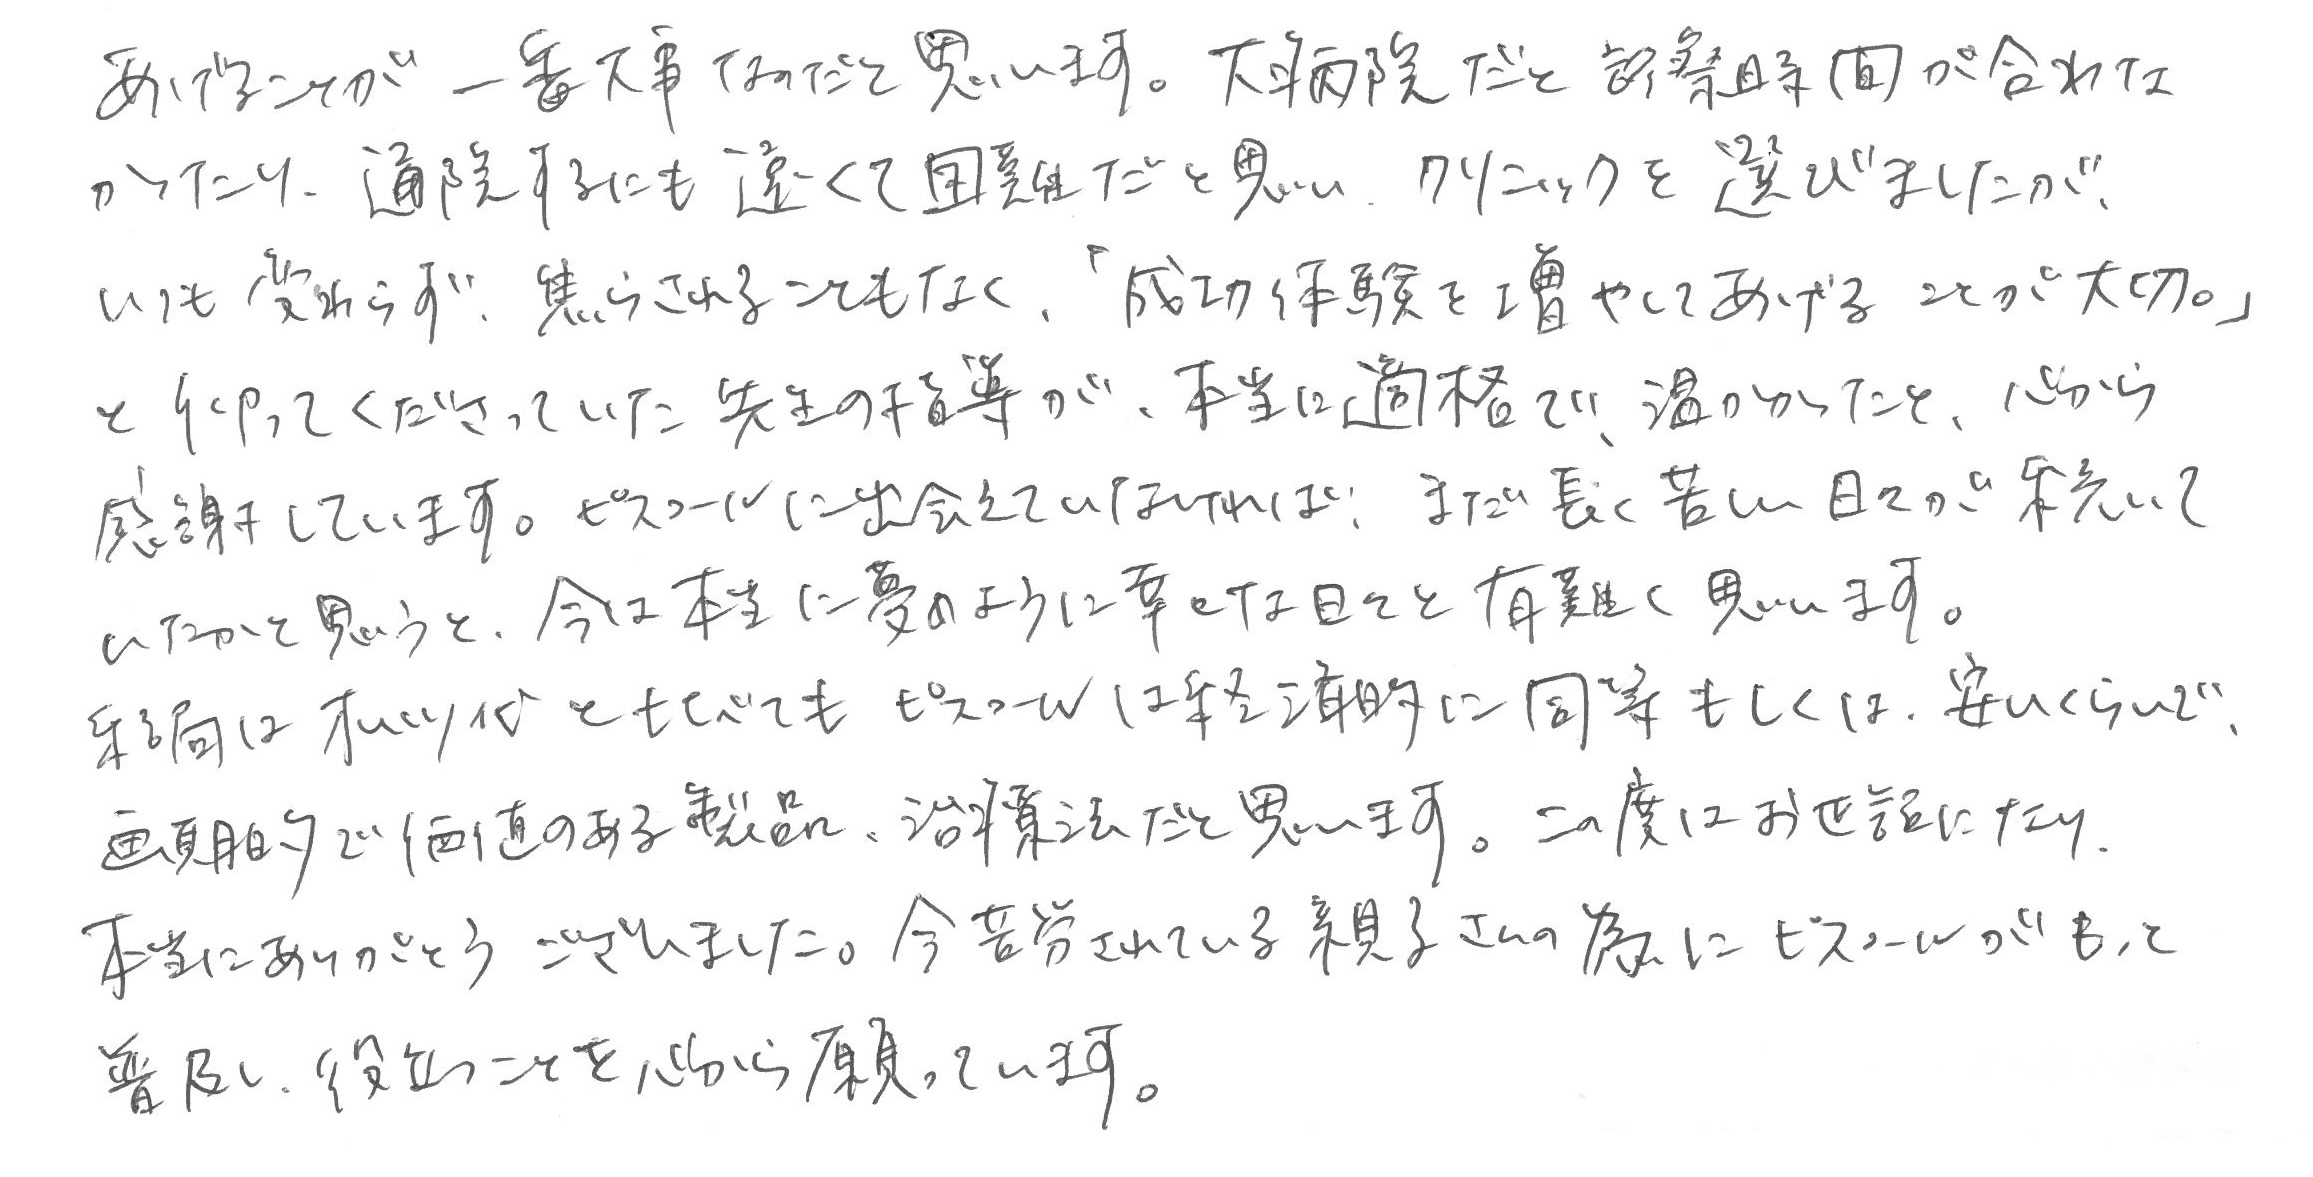 あげることが一番大事なのだと思います。大病院だと診察時間が合わな
かったり、通院するにも遠くて困難だと思い、クリニックを選びましたが、
いつも変わらず、焦らされることもなく、「成功体験を増やしてあげることが大切。」
と仰ってくださっていた先生の指導が、本当に適格で、温かかったと、心から
感謝しています。ピスコールに出会えていなければ、まだ長く苦しい日々が続いて
いたかと思うと、今は本当に夢のように幸せな日々と有難く思います。
結局はオムツ代と比べてもピスコールは経済的に同等もしくは、安いくらいで、
画期的で価値のある製品、治療法だと思います。この度はお世話になり、
本当にありがとうございました。今苦労されている親子さんの為にピスコールがもっと
普及し、役立つことを心から願っています。